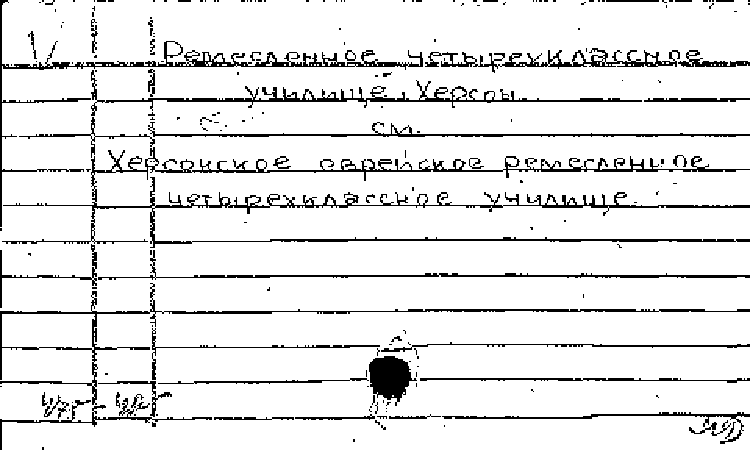 V Ремесленное четырехклассное
училище. Херсон
см.
Херсонское еврейское ремесленное
четырехклассное училище.